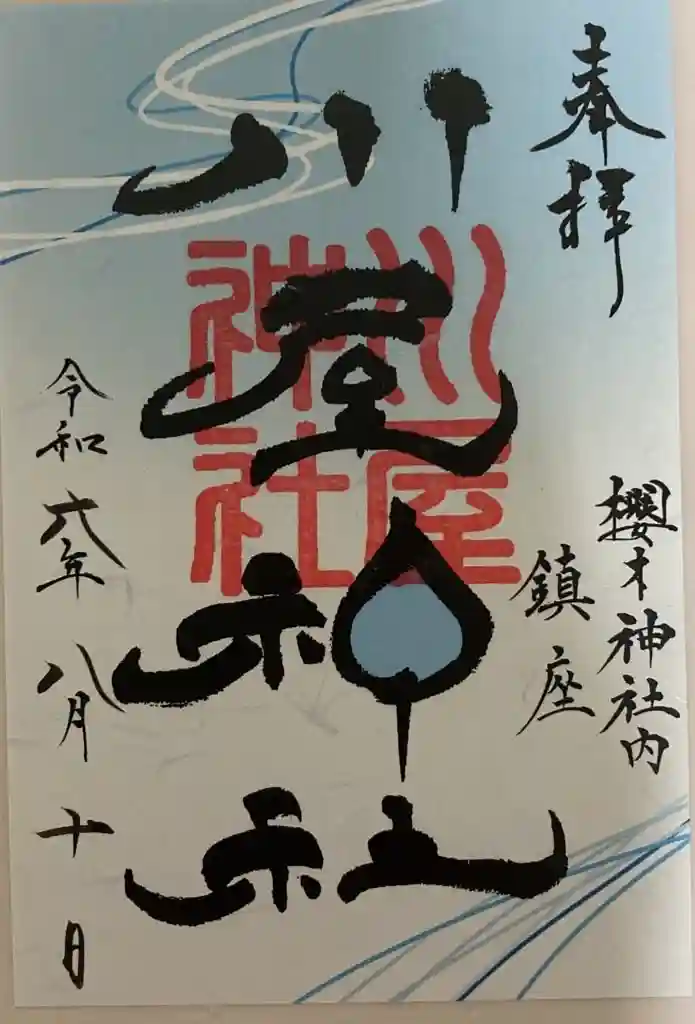 奉拝
櫻才神社内
鎮座
川屋神社
川屋神社
令和六年八月十日